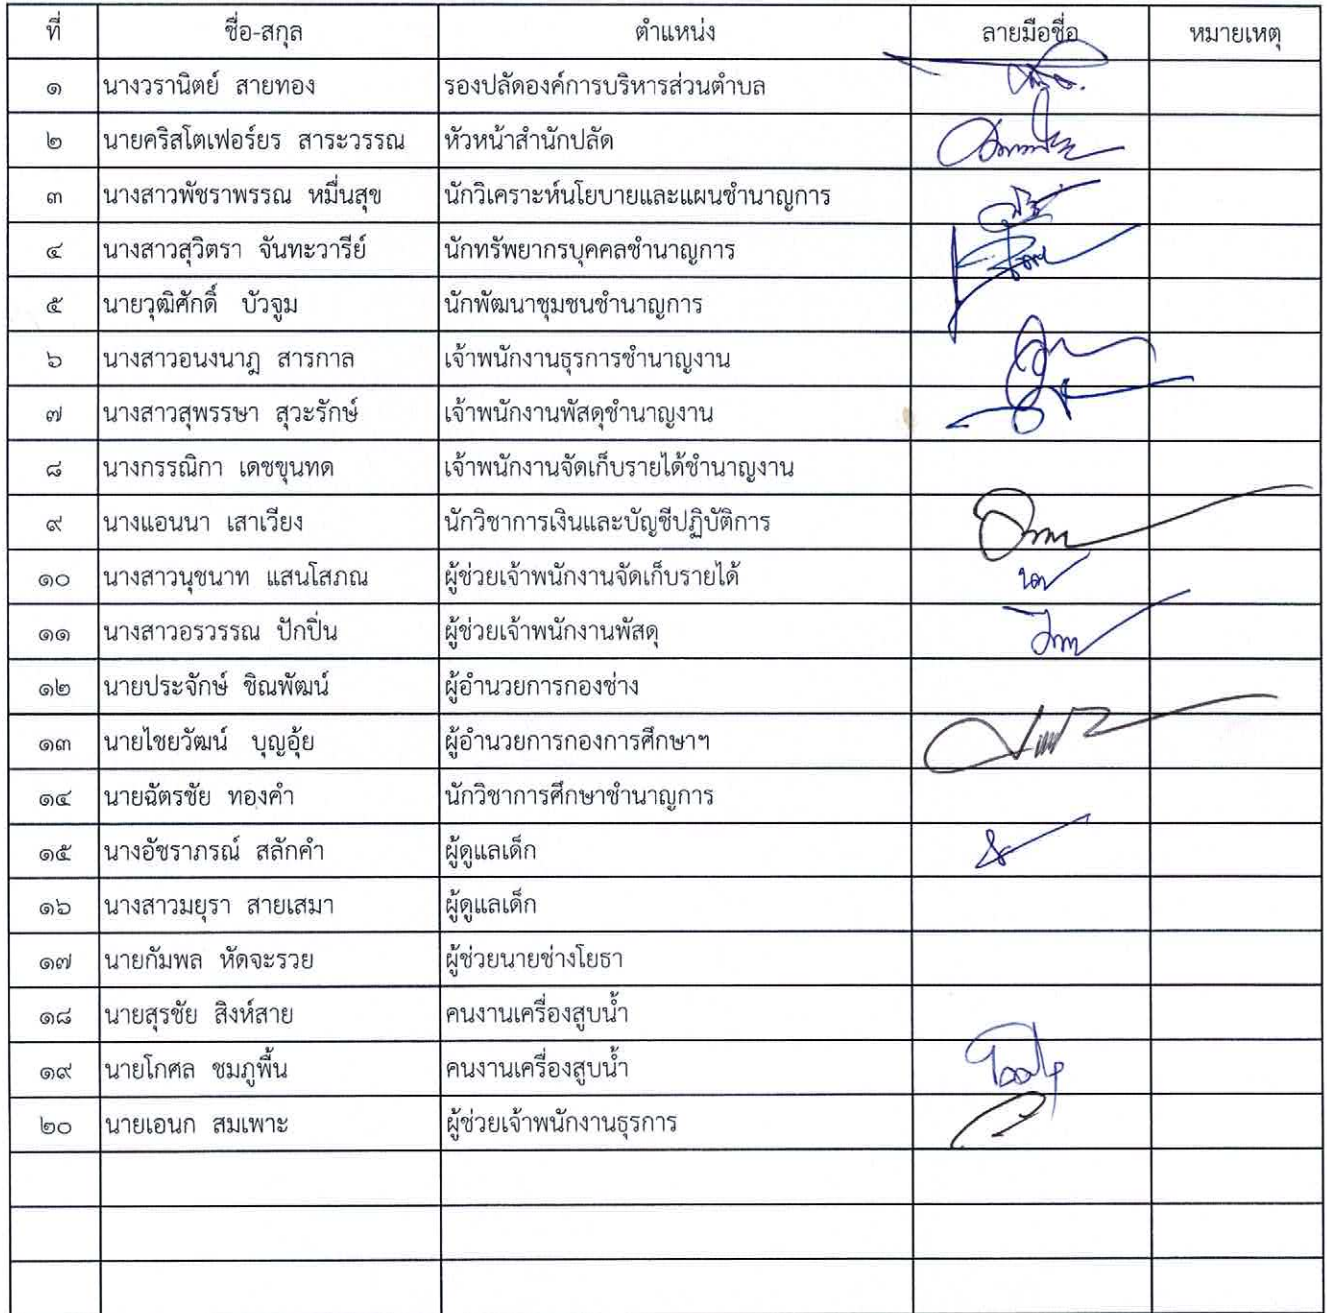 ที่ ชื่อ-สกุล ตำแหน่ง ลายมือชื่อ หมายเหตุ
๑ นางวรานิตย์ สายทอง รองปลัดองค์การบริหารส่วนตำบล
๒ นายคริสโตเฟอร์ยร สาระวรรณ หัวหน้าสำนักปลัด
๓ นางสาวพัชราพรรณ หมื่นสุข นักวิเคราะห์นโยบายและแผนชำนาญการ
๔ นางสาวสุวิตรา จันทะวารีย์ นักทรัพยากรบุคคลชำนาญการ
๕ นายวุฒิศักดิ์ บัวจูม นักพัฒนาชุมชนชำนาญการ
๖ นางสาวอนงนาฎ สารกาล เจ้าพนักงานธุรการชำนาญงาน
๗ นางสาวสุพรรษา สุวะรักษ์ เจ้าพนักงานพัสดุชำนาญงาน
๘ นางกรรณิกา เดชขุนทด เจ้าพนักงานจัดเก็บรายได้ชำนาญงาน
๙ นางแอนนา เสาเวียง นักวิชาการเงินและบัญชีปฏิบัติการ
๑๐ นางสาวนุชนาท แสนโสภณ ผู้ช่วยเจ้าพนักงานจัดเก็บรายได้
๑๑ นางสาวอรวรรณ ปักปิ่น ผู้ช่วยเจ้าพนักงานพัสดุ
๑๒ นายประจักษ์ ชิณพัฒน์ ผู้อำนวยการกองช่าง
๑๓ นายไชยวัฒน์ บุญอุ้ย ผู้อำนวยการกองการศึกษาฯ
๑๔ นายฉัตรชัย ทองคำ นักวิชาการศึกษาชำนาญการ
๑๕ นางอัชราภรณ์ สลักคำ ผู้ดูแลเด็ก
๑๖ นางสาวมยุรา สายเสมา ผู้ดูแลเด็ก
๑๗ นายกัมพล หัดจะรวย ผู้ช่วยนายช่างโยธา
๑๘ นายสุรชัย สิงห์สาย คนงานเครื่องสูบน้ำ
๑๙ นายโกศล ชมภูพื้น คนงานเครื่องสูบน้ำ
๒๐ นายเอนก สมเพาะ ผู้ช่วยเจ้าพนักงานธุรการ